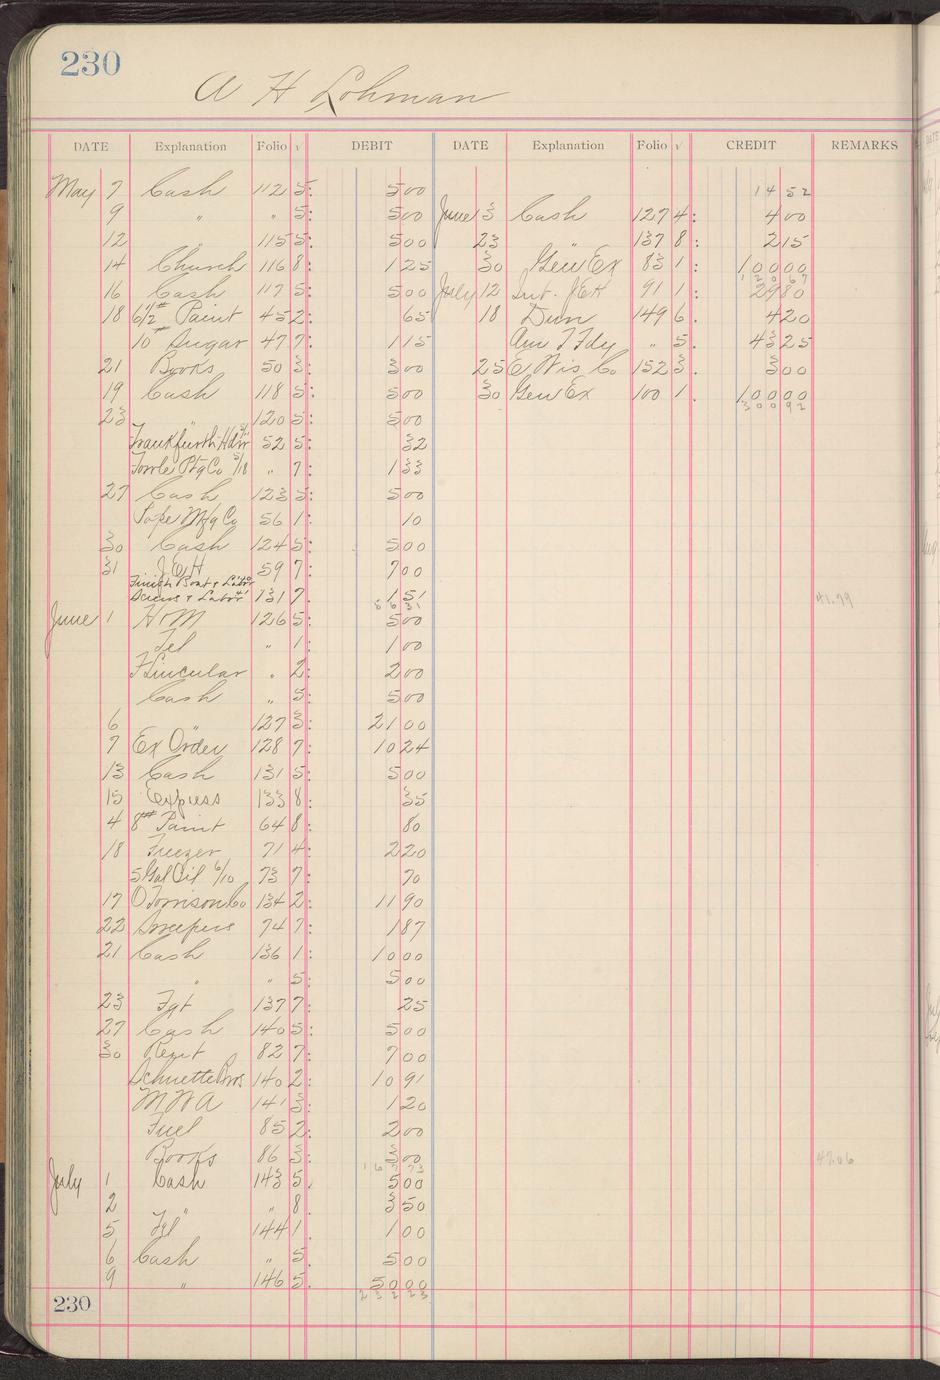 230
A H Lohman
DATE Explanation Folio √ DEBIT DATE Explanation Folio √ CREDIT REMARKS
May 7 Cash 112 5: 5 00 14 52
9 " " 5: 5 00 June 3 Cash 127 4: 4 00
12 " 115 5: 5 00 23 " 137 8: 2 15
14 Church 116 8: 1 25 30 Gen Ex 83 1: 100 00
120 67
16 Cash 117 5: 5 00 July 12 Int. JEH 91 1: 29 80
18 6 1/2# Paint 45 2: 65 18 Dun 149 6. 4 20
10# Sugar 47 7: 1 15 Am T Fdy " 5. 43 25
21 Books 50 3: 3 00 25 E Wis Co 152 3. 3 00
19 Cash 118 5: 5 00 30 Gen Ex 100 1. 100 00
300 92
23 " 120 5: 5 00
Frankfurth Hdw 52 5: 32
Towle Ptg Co 5/18 " 7: 1 33
27 Cash 123 5: 5 00
Pope Mfg Co 56 1: 10
30 Cash 124 5: 5 00
31 J E H 59 7: 7 00
Finish Boat & Labor
Screws & Labor 131 7. 1 51
66 31 41.79
June 1 H M 126 5: 5 00
Tel " 1: 1 00
" 2: 2 00
Cash " 5: 5 00
6 " 127 3: 21 00
7 Ex Order 128 7: 10 24
13 Cash 131 5: 5 00
15 Express 133 8: 35
4 8# Paint 64 8: 80
18 Freezer 71 4: 2 20
5 Gal Oil 6/10 73 7: 70
17 O Torrison Co 134 2: 11 90
22 Sweepers 74 7: 1 87
21 Cash 136 1: 10 00
" " 5: 5 00
23 Fgt 137 7: 25
27 Cash 140 5: 5 00
30 Rent 82 7: 7 00
Schuette Bros 140 2: 10 91
M W A 141 3: 1 20
Fuel 85 2: 2 00
Books 86 3: 3 00 47.06
167 73
July 1 Cash 143 5. 5 00
2 " " 8. 3 50
5 144 1. 1 00
6 Cash " 5. 5 00
9 " 146 5. 50 00
232 23
230